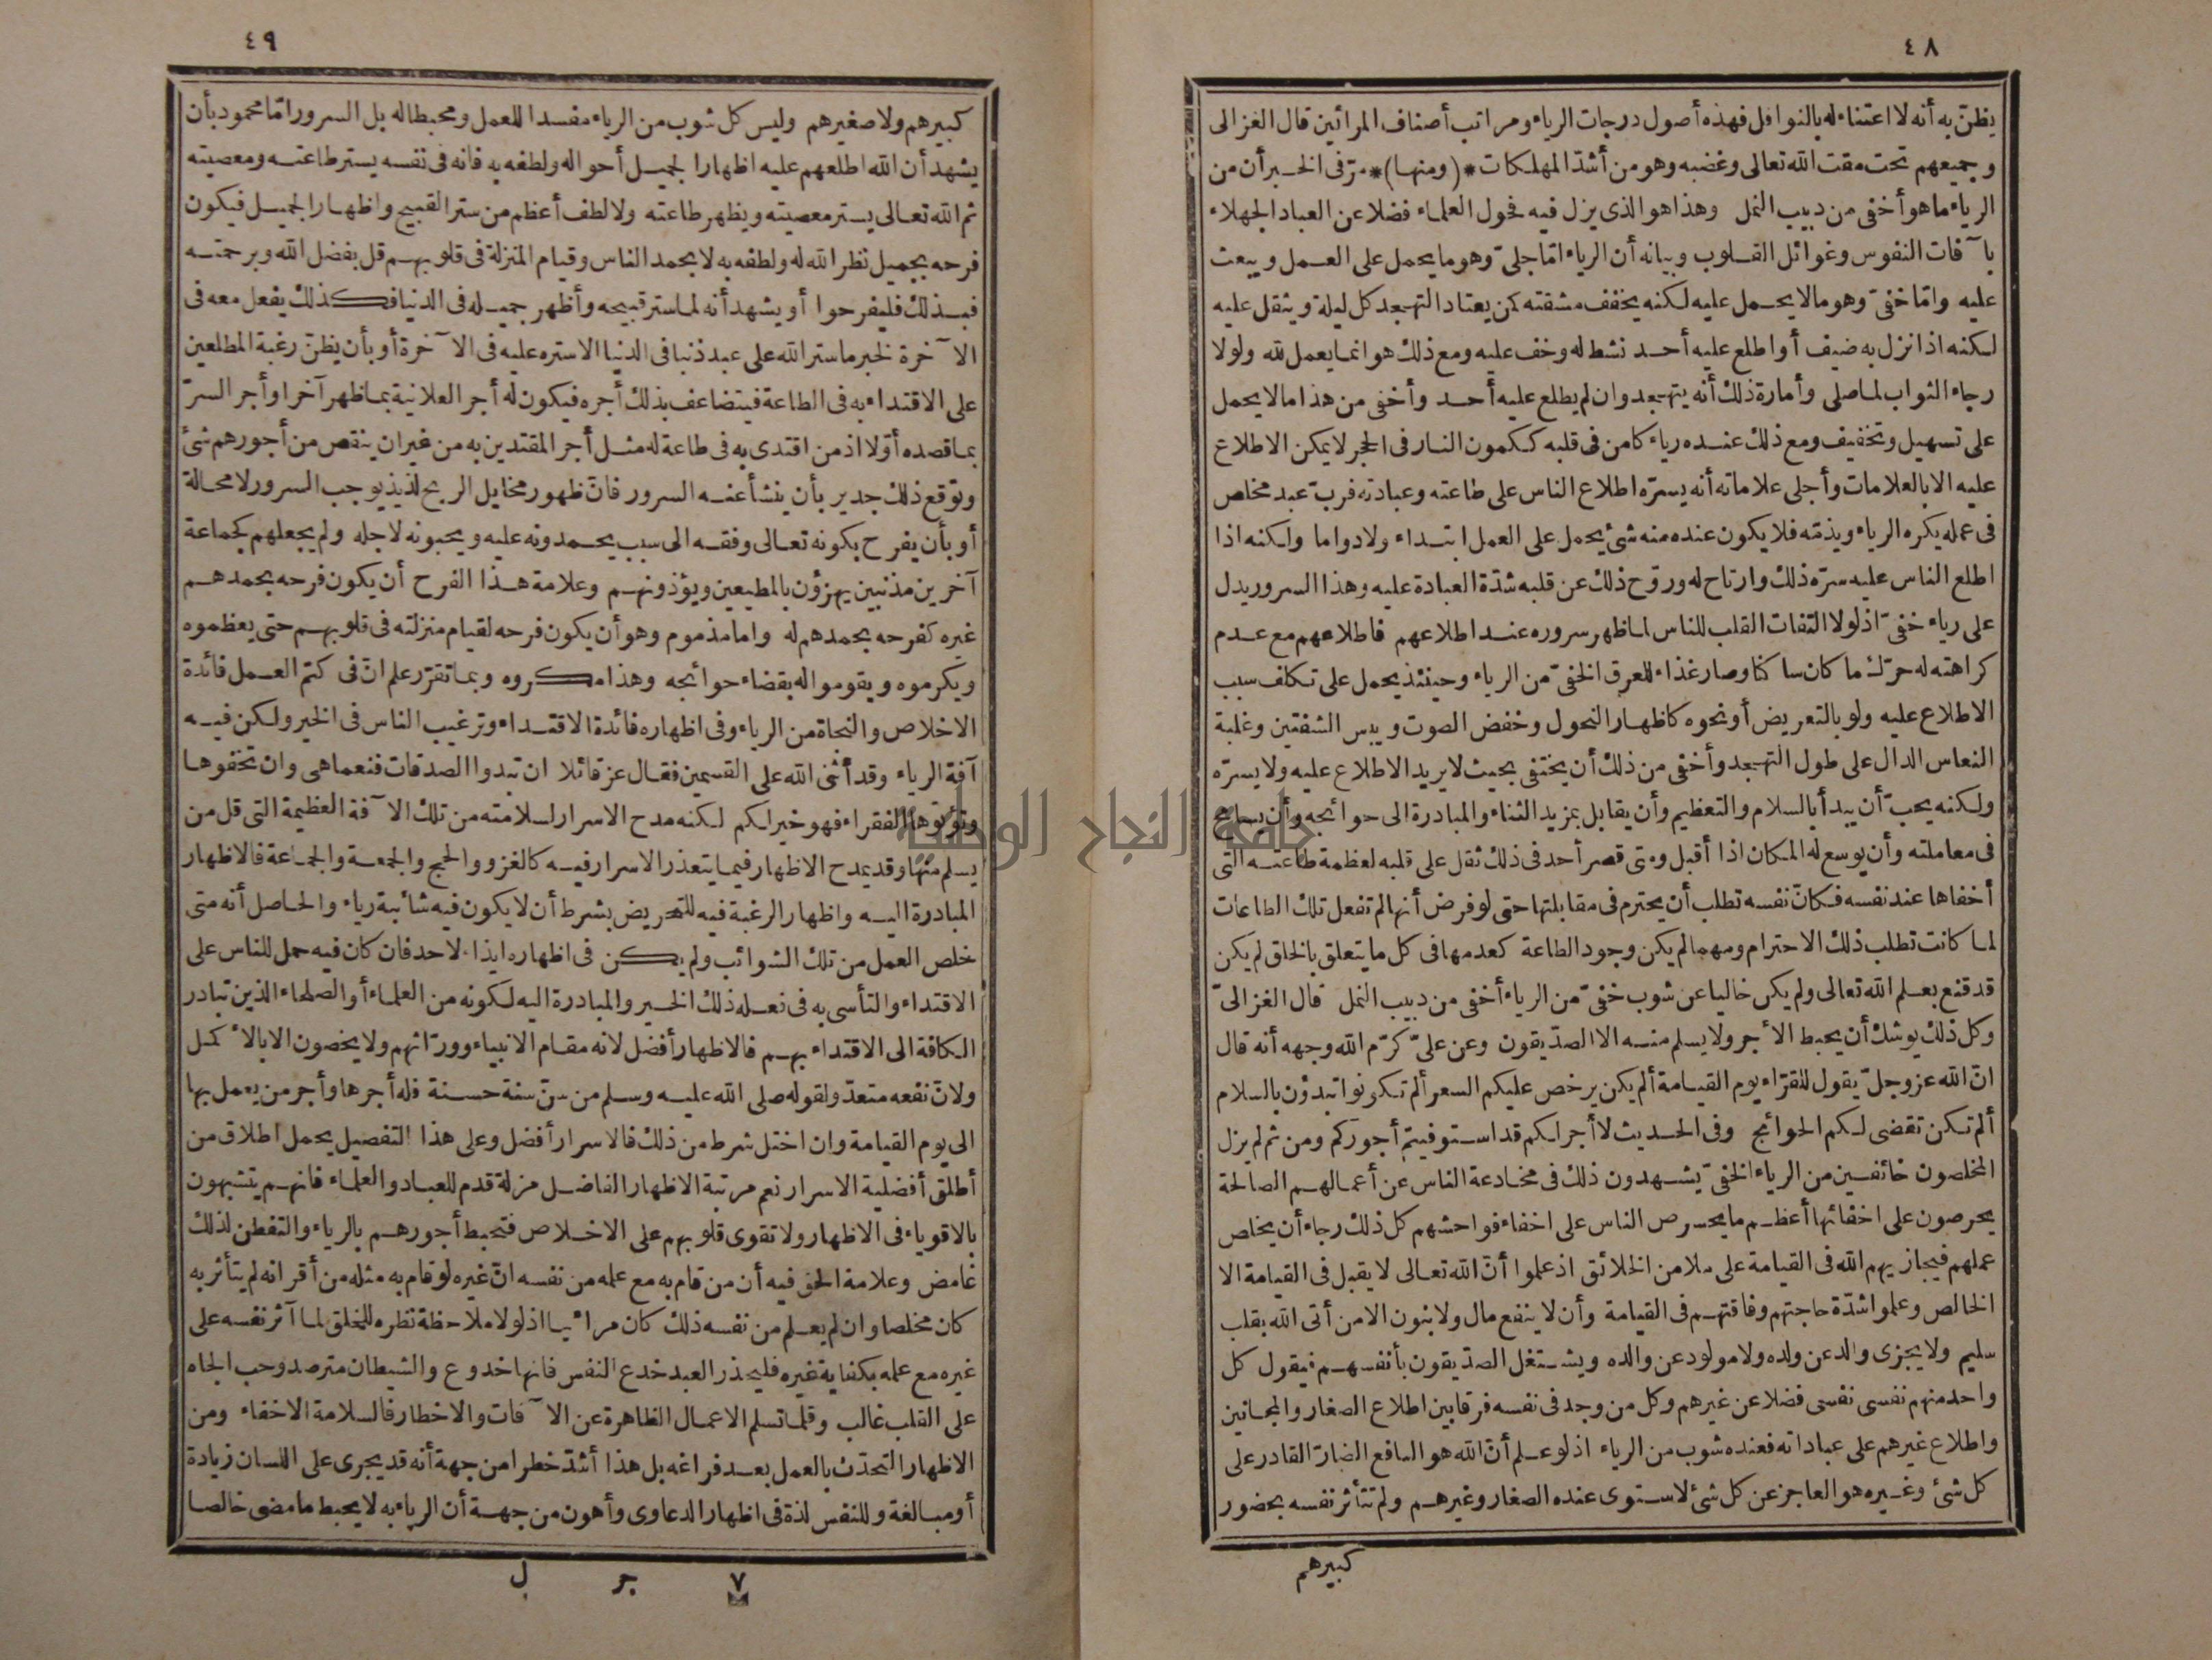 ٤٨
يظنّ به أنه لا اعتناء له بالنوافل فهذه أصول درجات الرياء ومراتب أصناف المرائين قال الغزالى
وجميعهم تحت مقت الله تعالى وغضبه وهو من أشدّ المهلكات *(ومنها)* مرّ فى الخبر أن من
الرياء ما هو أخفى من دبيب النمل وهذا هو الذى يزل فيه فحول العلماء فضلا عن العباد الجهلاء
بآفات النفوس وغوائل القلوب وبيانه أن الرياء امّا جلىّ وهو ما يحمل على العمل ويبعث
عليه وامّا خفىّ وهو مالا يحمل عليه لكنه يخفف مشقته كمن يعتاد التهجد كل ليلة ويثقل عليه
لكنه اذا نزل به ضيف أو اطلع عليه أحد نشط له وخف عليه ومع ذلك هو انما يعمل لله ولولا
رجاء الثواب لما صلى وأمارة ذلك أنه يتهجد وان لم يطلع عليه أحد وأخفى من هذا مالا يحمل
على تسهيل وتخفيف ومع ذلك عنده رياء كامن فى قلبه ككمون النار فى الحجر لا يمكن الاطلاع
عليه الا بالعلامات وأجلى علاماته أنه يسرّه اطلاع الناس على طاعته وعبادته فربّ عبد مخلص
فى عمله يكره الرياء ويذمّه فلا يكون عنده منه شئ يحمل على العمل ابتداء ولا دواما ولكنه اذا
اطلع الناس عليه سرّه ذلك وارتاح له وروّح ذلك عن قلبه شدّة العبادة عليه وهذا السرور يدل
على رياء خفىّ اذ لولا التفات القلب للناس لما ظهر سروره عند اطلاعهم فاطلاعهم مع عدم
كراهته له حرّك ما كان ساكنا وصار غذاء للعرق الخفىّ من الرياء وحينئذ يحمل على تكلف سبب
الاطلاع عليه ولو بالتعريض أو نحوه كاظهار النحول وخفض الصوت ويبس الشفتين وغلبة
النعاس الدال على طول التهجد وأخفى من ذلك أن يختفى بحيث لا يريد الاطلاع عليه ولا يسرّه
ولكنه يحبّ أن يبدأ بالسلام والتعظيم وأن يقابل بمزيد الثناء والمبادرة الى حوائجه وأن يسامح
فى معاملته وأن يوسع له المكان اذا أقبل ومتى قصر أحد فى ذلك ثقل على قلبه لعظمة طاعته التى
أخفاها عند نفسه فكانّ نفسه تطلب أن يحترم فى مقابلتها حتى لو فرض أنها لم تفعل تلك الطاعات
لما كانت تطلب ذلك الاحترام ومهما لم يكن وجود الطاعة كعدمها فى كل ما يتعلق بالخلق لم يكن
قد قنع بعلم الله تعالى ولم يكن خاليا عن شوب خفىّ من الرياء أخفى من دبيب النمل قال الغزالىّ
وكل ذلك يوشك أن يحبط الأجر ولا يسلم منه الا الصدّيقون وعن علىّ كرّم الله وجهه أنه قال
انّ الله عز وجلّ يقول للقرّاء يوم القيامة ألم يكن يرخص عليكم السعر ألم تكونوا تبدؤن بالسلام
ألم تكن تقضى لكم الحوائج وفى الحديث لا أجر لكم قد استوفيتم أجوركم ومن ثم لم يزل
المخلصون خائفين من الرياء الخفىّ يشهدون ذلك فى مخادعة الناس عن أعمالهم الصالحة
يحرصون على اخفائها أعظم ما يحرص الناس على اخفاء فواحشهم كل ذلك رجاء أن يخلص
عملهم فيجازيهم الله فى القيامة على ملا من الخلائق اذ علموا أنّ الله تعالى لا يقبل فى القيامة الا
الخالص وعلموا شدّة حاجتهم وفاقتهم فى القيامة وأن لا ينفع مال ولا بنون الا من أتى الله بقلب
سليم ولا يجزى والد عن ولده ولا مولود عن والده ويشتغل الصدّيقون بأنفسهم فيقول كل
واحد منهم نفسى نفسى فضلا عن غيرهم وكل من وجد فى نفسه فرقا بين اطلاع الصغار والمجانين
واطلاع غيرهم على عباداته فعنده شوب من الرياء اذ لو علم أنّ الله هو النافع الضارّ القادر على
كل شئ وغيره هو العاجز عن كل شئ لاستوى عنده الصغار وغيرهم ولم تتأثر نفسه بحضور
كبيرهم
٤٩
كبيرهم ولا صغيرهم وليس كل شوب من الرياء مفسدا للعمل ومحبطا له بل السرور امّا محمود بأن
يشهد أن الله اطلعهم عليه اظهارا لجميل أحواله ولطفه به فانه فى نفسه يستر طاعته ومعصيته
ثم الله تعالى يستر معصيته ويظهر طاعته ولا لطف أعظم من ستر القبيح واظهار الجميل فيكون
فرحه بجميل نظر الله له ولطفه به لا بحمد الناس وقيام المنزلة فى قلوبهم قل بفضل الله وبرحمته
فبذلك فليفرحوا أو يشهد أنه لما ستر قبيحه وأظهر جميله فى الدنيا فكذلك يفعل معه فى
الآخرة لخبر ما ستر الله على عبد ذنبا فى الدنيا الا ستره عليه فى الآخرة أو بأن يظنّ رغبة المطلعين
على الاقتداء به فى الطاعة فيتضاعف بذلك أجره فيكون له أجر العلانية بما ظهر آخرا وأجر السرّ
بما قصده أوّلا اذ من اقتدى به فى طاعة له مثل أجر المقتدين به من غير ان ينقص من أجورهم شئ
وتوقع ذلك جدير بأن ينشأ عنه السرور فانّ ظهور مخايل الربح لذيذ يوجب السرور لا محالة
أو بأن يفرح بكونه تعالى وفقه الى سبب يحمدونه عليه ويحبونه لاجله ولم يجعلهم كجماعة
آخرين مذنبين يهزؤن بالمطيعين ويؤذونهم وعلامة هذا الفرح أن يكون فرحه بحمدهم
غيره كفرحه بحمدهم له واما مذموم وهو أن يكون فرحه لقيام منزلته فى قلوبهم حتى يعظموه
ويكرموه ويقوموا له بقضاء حوائجه وهذا مكروه وبما تقرّر علم انّ فى كتم العمل فائدة
الاخلاص والنجاة من الرياء وفى اظهاره فائدة الاقتداء وترغيب الناس فى الخير ولكن فيه
آفة الرياء وقد أثنى الله على القسمين فقال عز قائلا ان تبدوا الصدقات فنعما هى وان تخفوها
وتؤتوها الفقراء فهو خير لكم لكنه مدح الاسرار لسلامته من تلك الآفة العظيمة التى قل من
يسلم منها وقد يمدح الاظهار فيما يتعذر الاسرار فيه كالغزو والحج والجمعة والجماعة فالاظهار
المبادرة اليه واظهار الرغبة فيه للتحريض بشرط أن لا يكون فيه شائبة رياء والحاصل أنه متى
خلص العمل من تلك الشوائب ولم يكن فى اظهاره ايذاء لاحد فان كان فيه حمل للناس على
الاقتداء والتأسى به فى فعله ذلك الخير والمبادرة اليه لكونه من العلماء أو الصلحاء الذين تبادر
الكافة الى الاقتداء بهم فالاظهار أفضل لانه مقام الانبياء وورّاثهم ولا يخصون الا بالأكمل
ولانّ نفعه متعدّ ولقوله صلى الله عليه وسلم من سنّ سنة حسنة فله أجرها وأجر من يعمل بها
الى يوم القيامة وان اختل شرط من ذلك فالاسرار أفضل وعلى هذا التفصيل يحمل اطلاق من
أطلق أفضلية الاسرار نعم مرتبة الاظهار الفاضل مزلة قدم للعباد والعلماء فانهم يتشبهون
بالاقوياء فى الاظهار ولا تقوى قلوبهم على الاخلاص فتحبط أجورهم بالرياء والتفطن لذلك
غامض وعلامة الحق فيه أن من قام به مع علمه من نفسه انّ غيره لو قام به مثله من أقرانه لم يتأثر به
كان مخلصا وان لم يعلم من نفسه ذلك كان مرائيا اذ لولا ملاحظة نظره للخلق لما آثر نفسه على
غيره مع علمه بكفاية غيره فليحذر العبد خدع النفس فانها خدوع والشيطان مترصد وحب الجاه
على القلب غالب وقلما تسلم الاعمال الظاهرة عن الآفات والاخطار فالسلامة الاخفاء ومن
الاظهار التحدّث بالعمل بعد فراغه بل هذا أشدّ خطرا من جهة أنه قد يجرى على اللسان زيادة
أو مبالغة وللنفس لذة فى اظهار الدعاوى وأهون من جهة أن الرياء به لا يحبط ما مضى خالصا
٧ جر ل
جامعة النجاح الوطنية